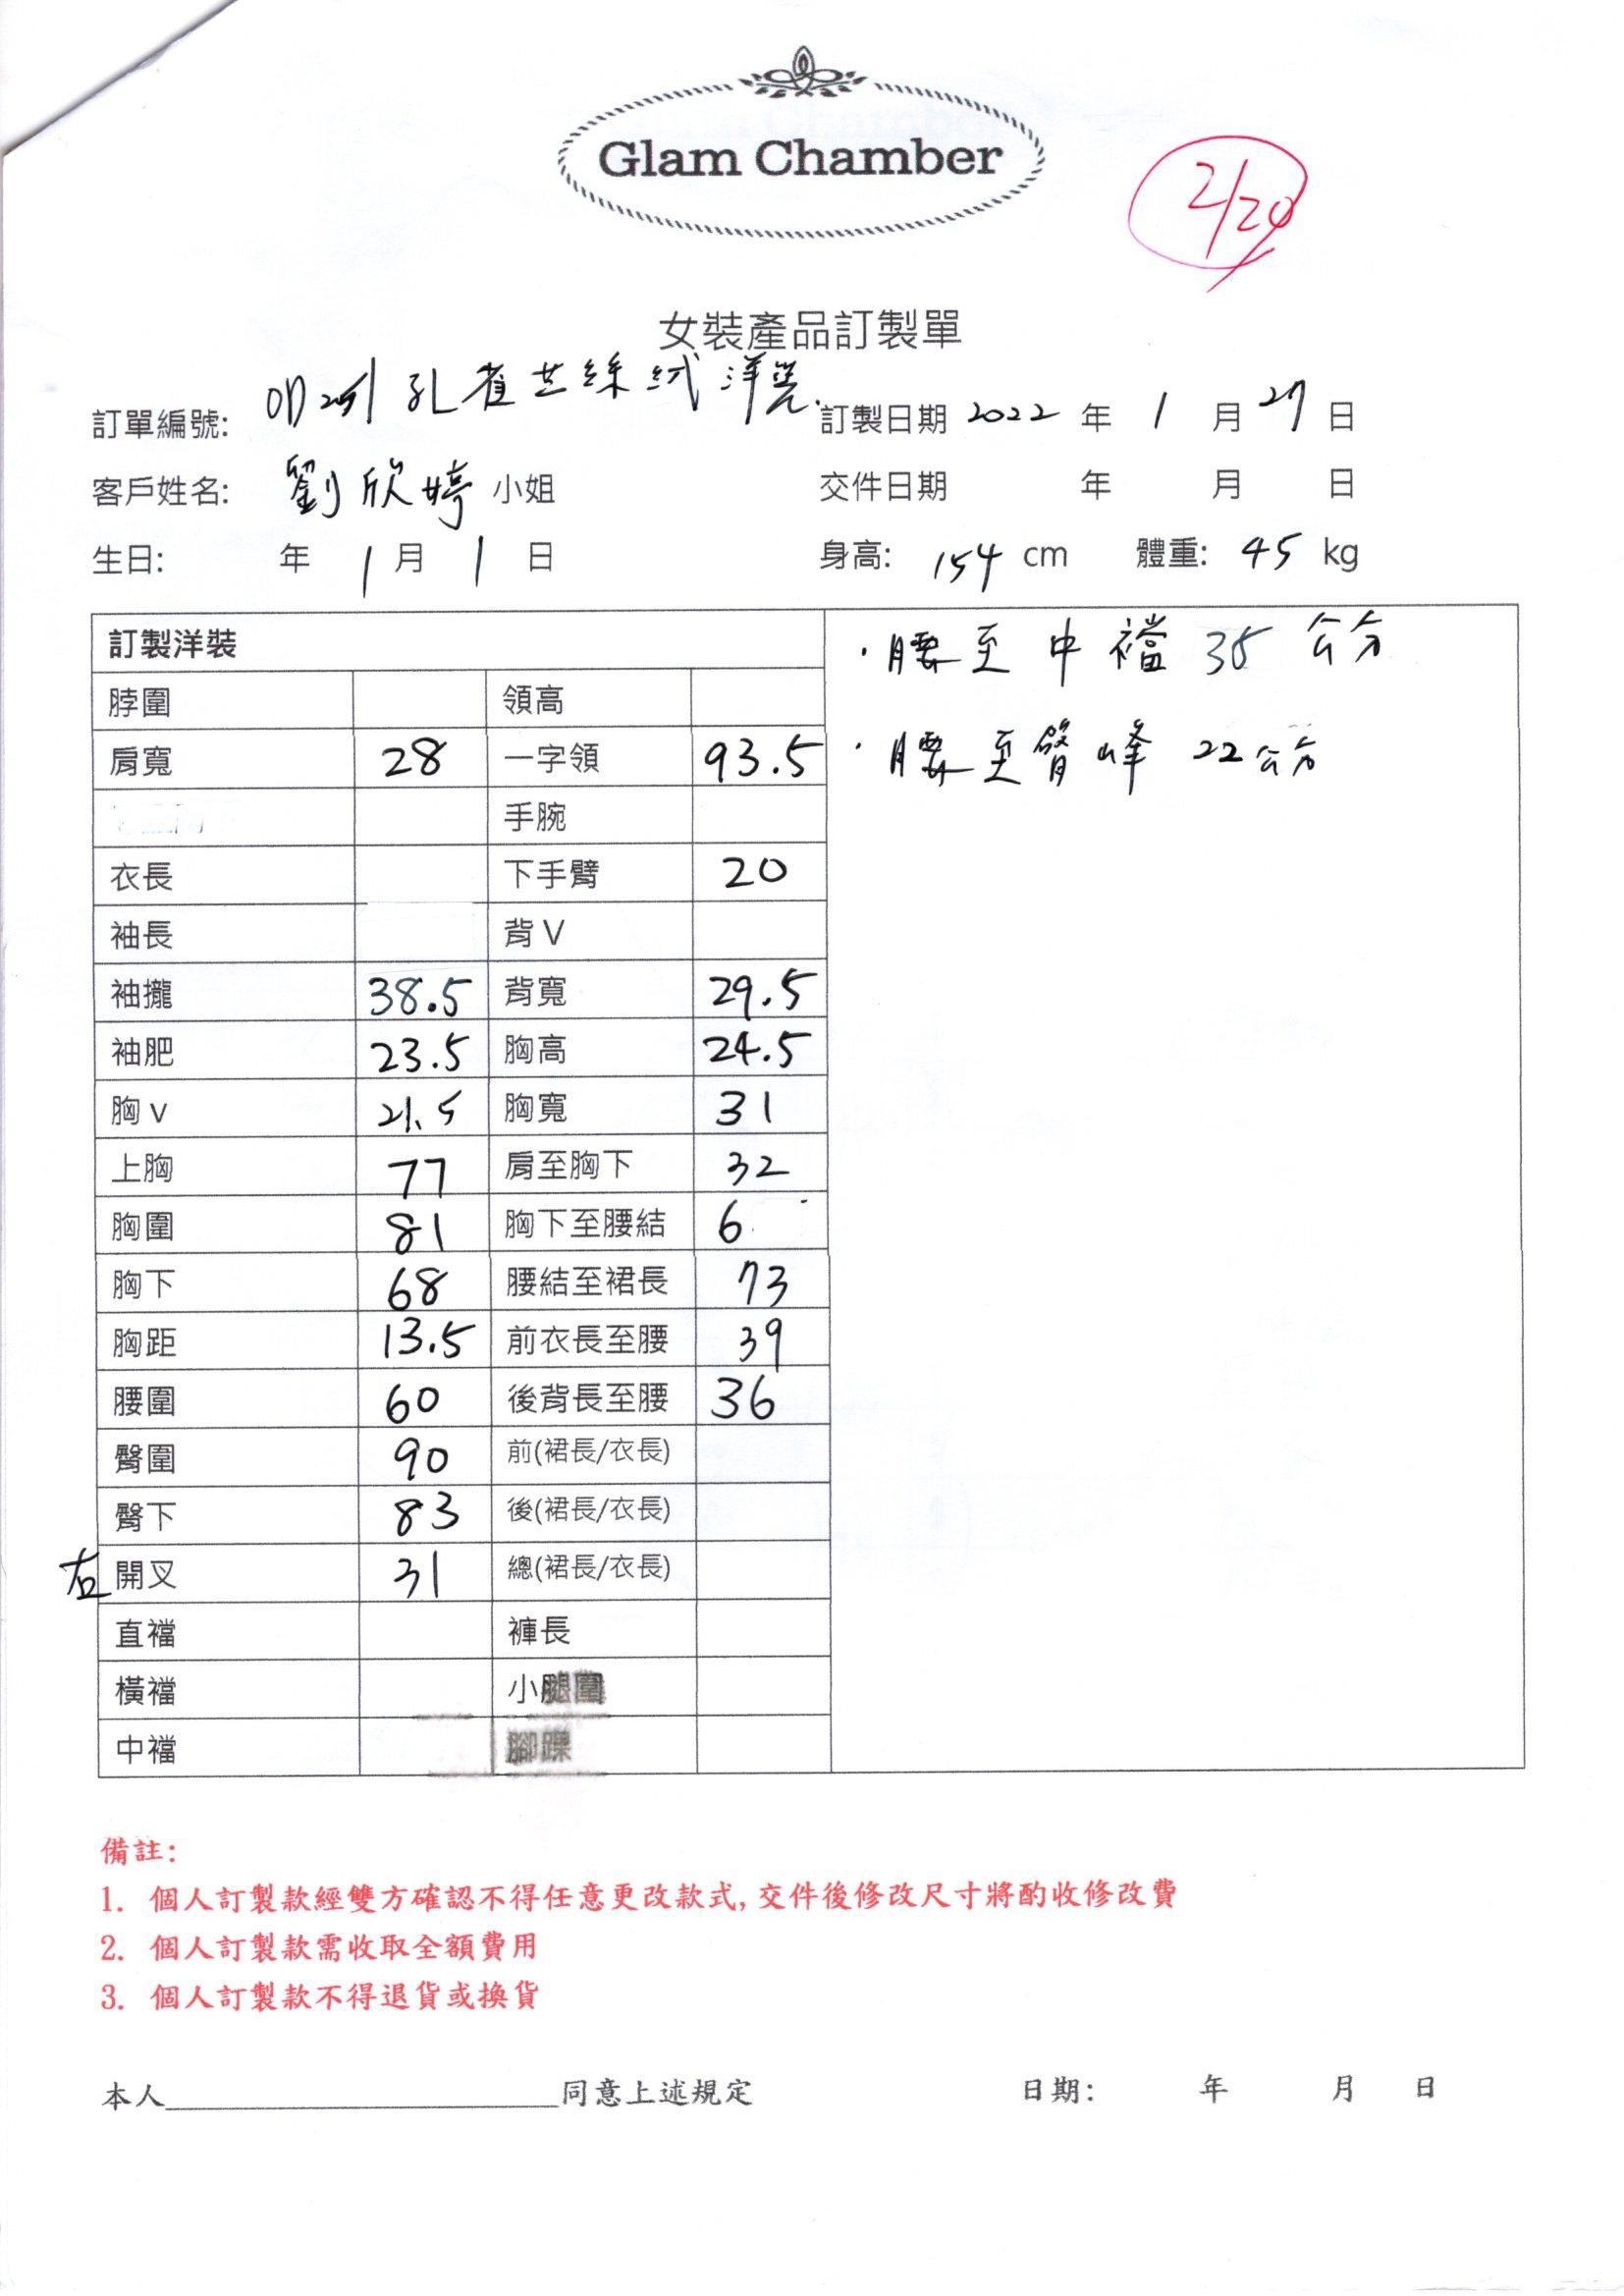 Glam Chamber
2/20
女裝產品訂製單
訂單編號: 孔雀芷絲絨洋裝 訂製日期 2022 年 1 月 27 日
客戶姓名: 劉欣婷 小姐 交件日期 年 月 日
生日: 年 1 月 1 日 身高: 154 cm 體重: 45 kg
訂製洋裝
脖圍 領高
肩寬 28 一字領 93.5
手腕
衣長 下手臂 20
袖長 背V
袖攏 38.5 背寬 29.5
袖肥 23.5 胸高 24.5
胸v 21.5 胸寬 31
上胸 77 肩至胸下 32
胸圍 81 胸下至腰結 6
胸下 68 腰結至裙長 73
胸距 13.5 前衣長至腰 39
腰圍 60 後背長至腰 36
臀圍 90 前(裙長/衣長)
臀下 83 後(裙長/衣長)
右 開叉 31 總(裙長/衣長)
直襠 褲長
橫襠 小腿圍
中襠 腳踝
·腰至中襠 公分
·腰至臀峰 22公分
備註:
1. 個人訂製款經雙方確認不得任意更改款式,交件後修改尺寸將酌收修改費
2. 個人訂製款需收取全額費用
3. 個人訂製款不得退貨或換貨
本人____________________同意上述規定 日期: 年 月 日